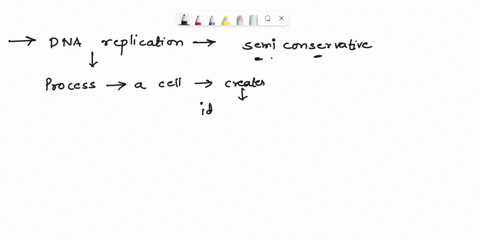 → DNA replication → semi conservative
↓
Process → a cell → creates
↓
id